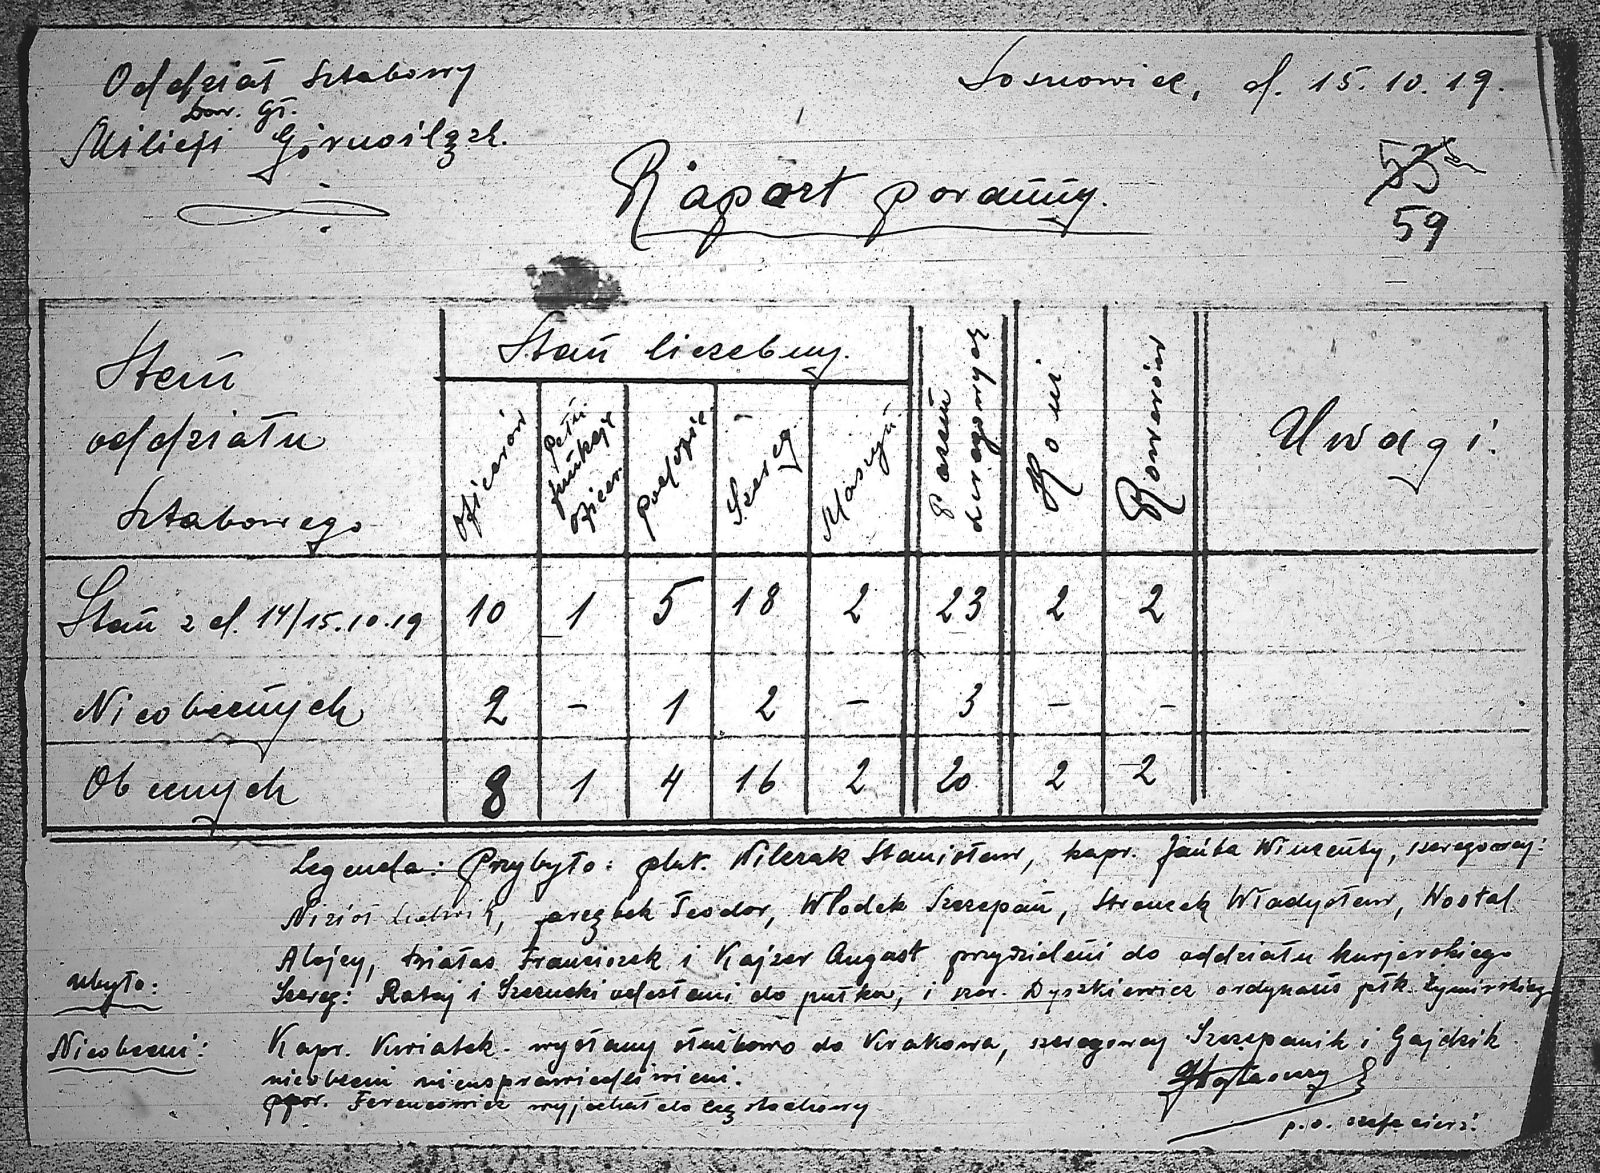 Oddział Sztabowy
Dow. Gł.
Milicji Górnośląsk.
Sosnowiec, d. 15.10.19.
53
59
Raport poranny.
Stan oddziału Sztabowego
Stan liczebny.
Oficerów
Pełn. funkcje oficer.
podofic.
Szereg.
Maszyn
Razem szeregowych
Koni
Rowerów
Uwagi.
Stan z d. 14/15.10.19 10 1 5 18 2 23 2 2
Nieobecnych 2 – 1 2 – 3 – –
Obecnych 8 1 4 16 2 20 2 2
Legenda: Przybyło: plut. Wilczak Stanisław, kapr. Janta Wincenty, szeregowcy:
Nizioł Ludwik, Teodor, Włodek Szczepan, Władysław,
Alojzy, Franciszek i Kajzer August przydzieleni do oddziału kurjerskiego
ubyło: Szereg: Rataj i Szczucki odesłani do pułków, i szer. Dyszkiewicz ordynans płk. Żymirskiego
Nieobecni: Kapr. Kwiatek wysłany służbowo do Krakowa, szeregowcy Szczepanik i Gajdzik
nieobecni nieusprawiedliwieni.
ppor. Ferencowicz wyjechał do Częstochowy
p.o. szefa